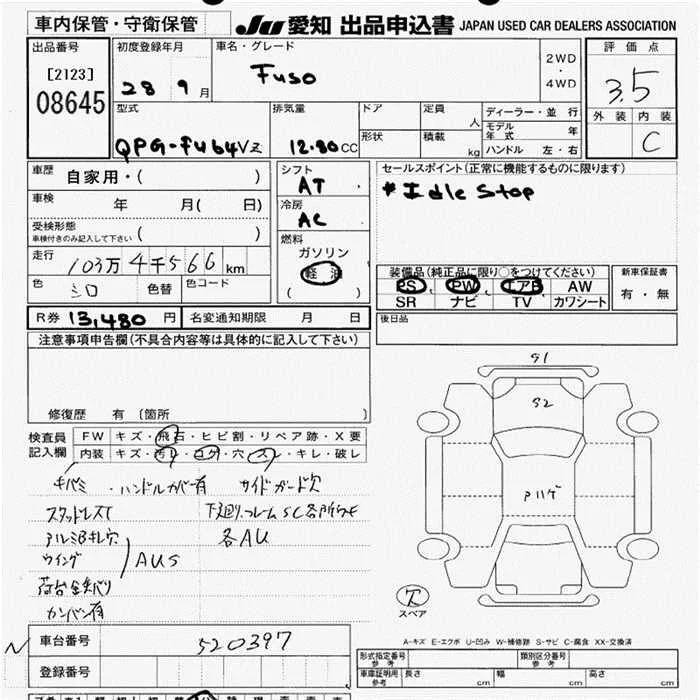 車内保管・守衛保管
JU 愛知 出品申込書 JAPAN USED CAR DEALERS ASSOCIATION
出品番号
[2123]
08645
初度登録年月
28 9月
車名・グレード
Fuso
2WD
・
4WD
評価点
3.5
外装 内装
C
型式
QPG-FU64VZ
排気量
12.80CC
ドア
形状
定員
人
積載
kg
ディーラー・並行
モデル年式 年
ハンドル 左・右
車歴
自家用・( )
車検
年 月( 日)
受検形態
車検付きのみ記入して下さい ( )
走行
103万4千566km
色
シロ
色替
色コード
シフト
AT
冷房
AC
燃料
ガソリン
軽油
( )
セールスポイント(正常に機能するものに限ります)
*Idle Stop
装備品(純正品に限り○をつけてください)
PS PW エアB AW
SR ナビ TV カワシート
新車保証書
有・無
後日品
R券 13,480円
名変通知期限 月 日
注意事項申告欄(不具合内容等は具体的に記入して下さい)
修復歴 有 〔箇所
検査員
記入欄
FW キズ・飛石・ヒビ割・リペア跡・X要
内装 キズ・汚れ・コゲ・穴・スレ・キレ・破レ
キバミ ・ハンドルカバー有 サイドガード欠
スタッドレスT 下廻り.フレームSC各所
アルミBキレ穴 各AU
ウイング AUS
荷台 金バリ
カンバン有
S1
S2
Pハゲ
欠
スペア
A-キズ E-エクボ U-凹み W-補修跡 S-サビ C-腐食 XX-交換済
N 車台番号
520397
登録番号
形式指定番号
参考
類別区分番号
参考
車庫証明用
参考
長さ cm
幅 cm
高さ cm